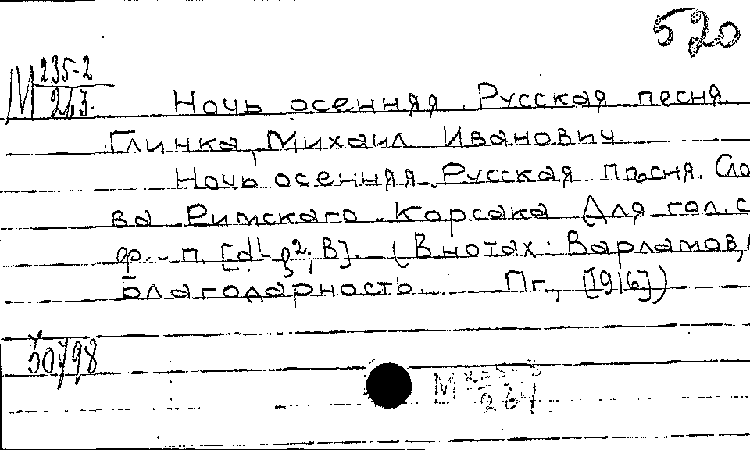 520
М 235-2
243.
Ночь осенняя. Русская песня
Глинка, Михаил Иванович
Ночь осенняя. Русская пѣсня. Сло
ва Римскаго-Корсака Для гол. с
ф.-п. [d¹-g²; В]. (В нотах: Варламов,
Благодарность... Пг., [1916])
50798
М
267